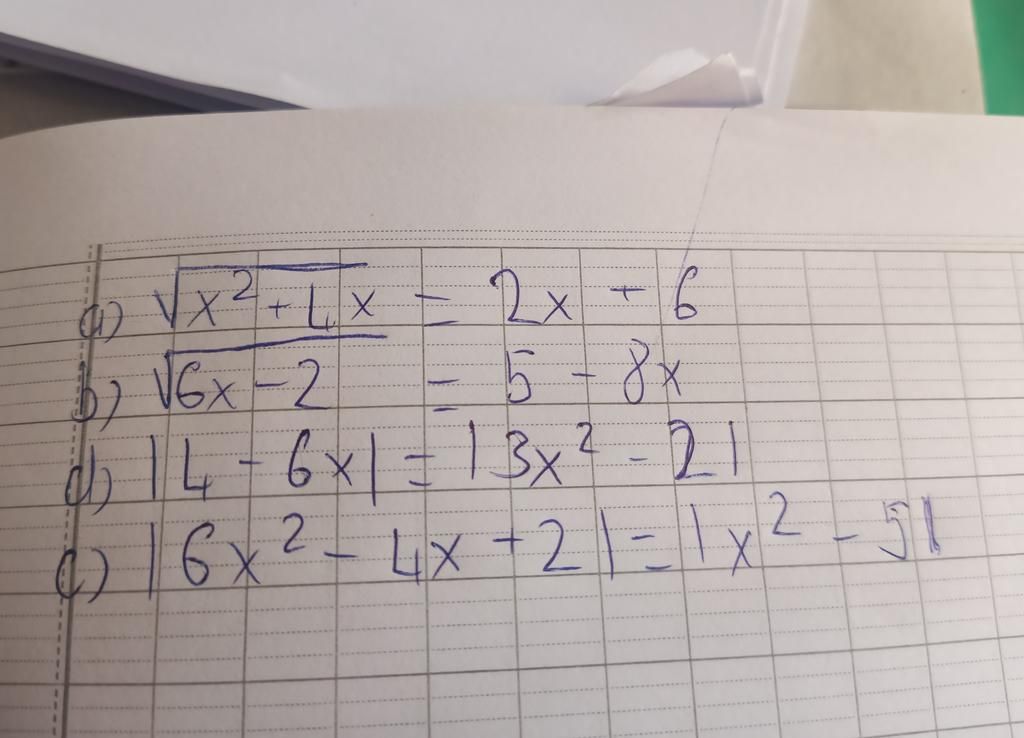 a) √x² + 4x = 2x + 6
b) √6x - 2 = 5 - 8x
d) |4 - 6x| = |3x² - 2|
c) |6x² - 4x + 2| = |x² - 5|